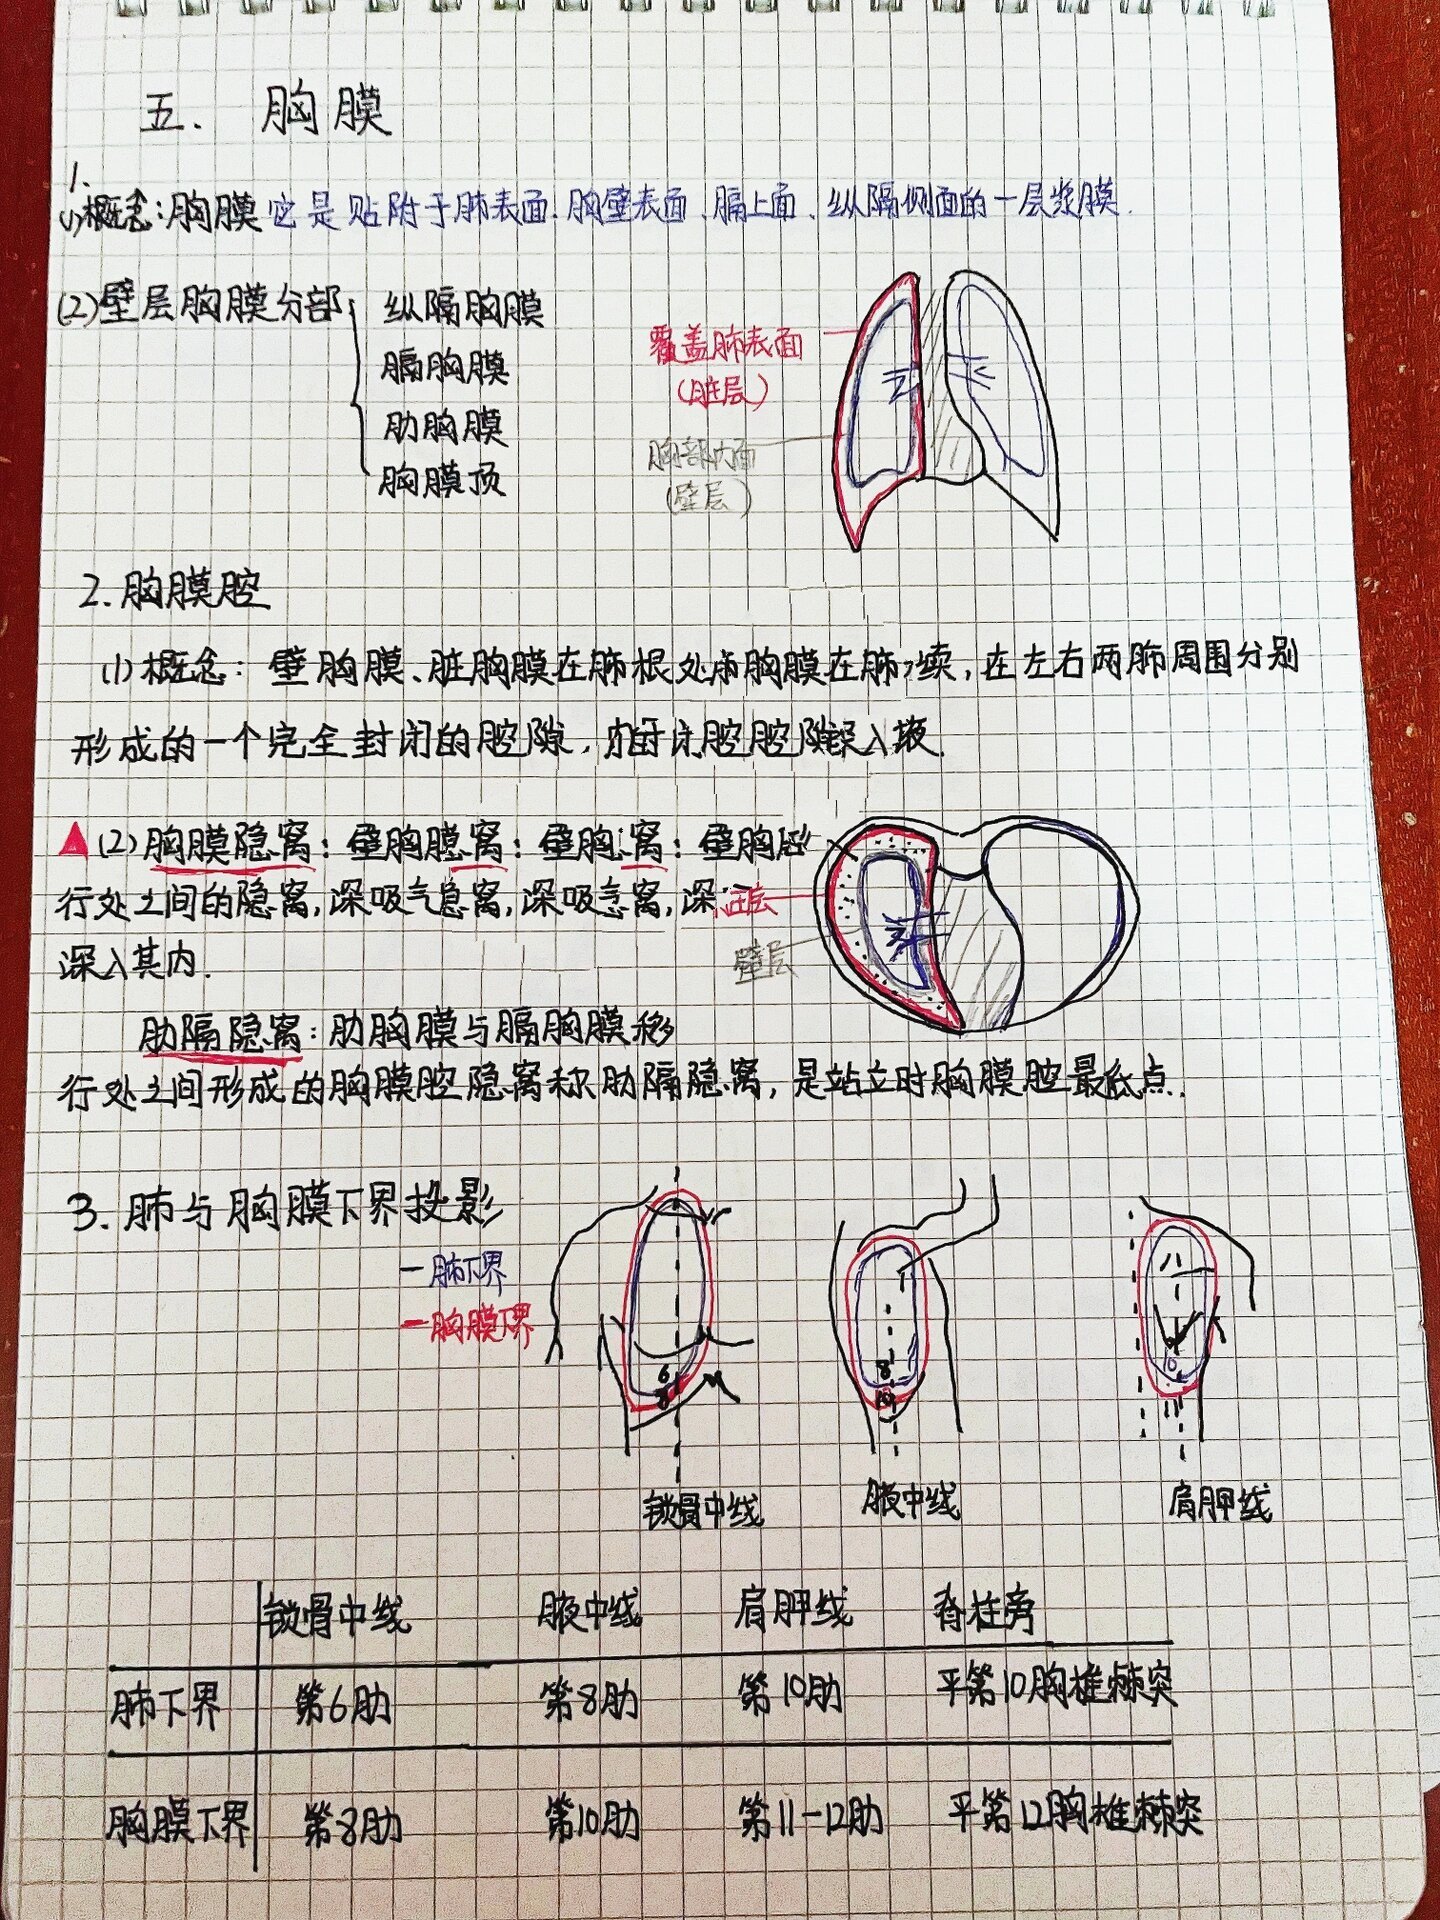 五. 胸膜
1.
(1)概念:胸膜 它是贴附于肺表面、胸壁表面、膈上面、纵隔侧面的一层浆膜.
(2)壁层胸膜分部
纵隔胸膜
膈胸膜
肋胸膜
胸膜顶
覆盖肺表面
(脏层)
胸部内面
(壁层)
2.胸膜腔
(1)概念: 壁胸膜、脏胸膜在肺根处 胸膜在肺 续,在左右两肺周围分别
形成的一个完全封闭的腔隙, 腔腔隙 入液.
▲(2)胸膜隐窝: 壁胸膜窝: 壁胸 窝: 壁胸
行处之间的隐窝,深吸气 窝,深吸 窝,深
深入其内.
层
壁层
肋隔隐窝: 肋胸膜与膈胸膜移
行处之间形成的胸膜腔隐窝称肋隔隐窝, 是站立时胸膜腔最低点.
3. 肺与胸膜下界投影
一肺下界
一胸膜下界
6
8
8
10
10
11
锁骨中线 腋中线 肩胛线
锁骨中线 腋中线 肩胛线 脊柱旁
肺下界 第6肋 第8肋 第10肋 平第10胸椎棘突
胸膜下界 第8肋 第10肋 第11-12肋 平第12胸椎棘突